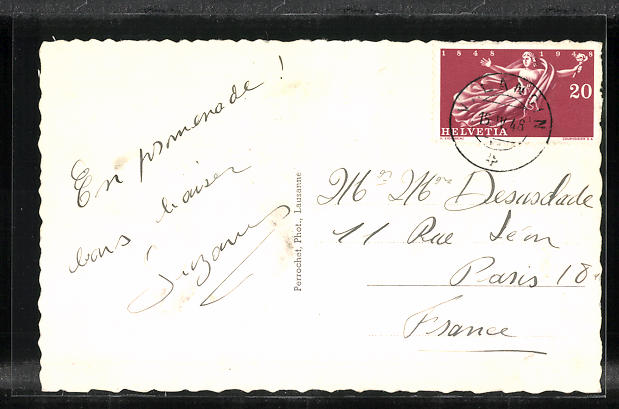 1848 1948
20
HELVETIA
COURVOISIER S.A.
15.IV.48
En promenade !
bons baiser
Suzanne
Perrochet, Phot., Lausanne
Mr Mme Desusclade
11 Rue Léon
Paris 18
France